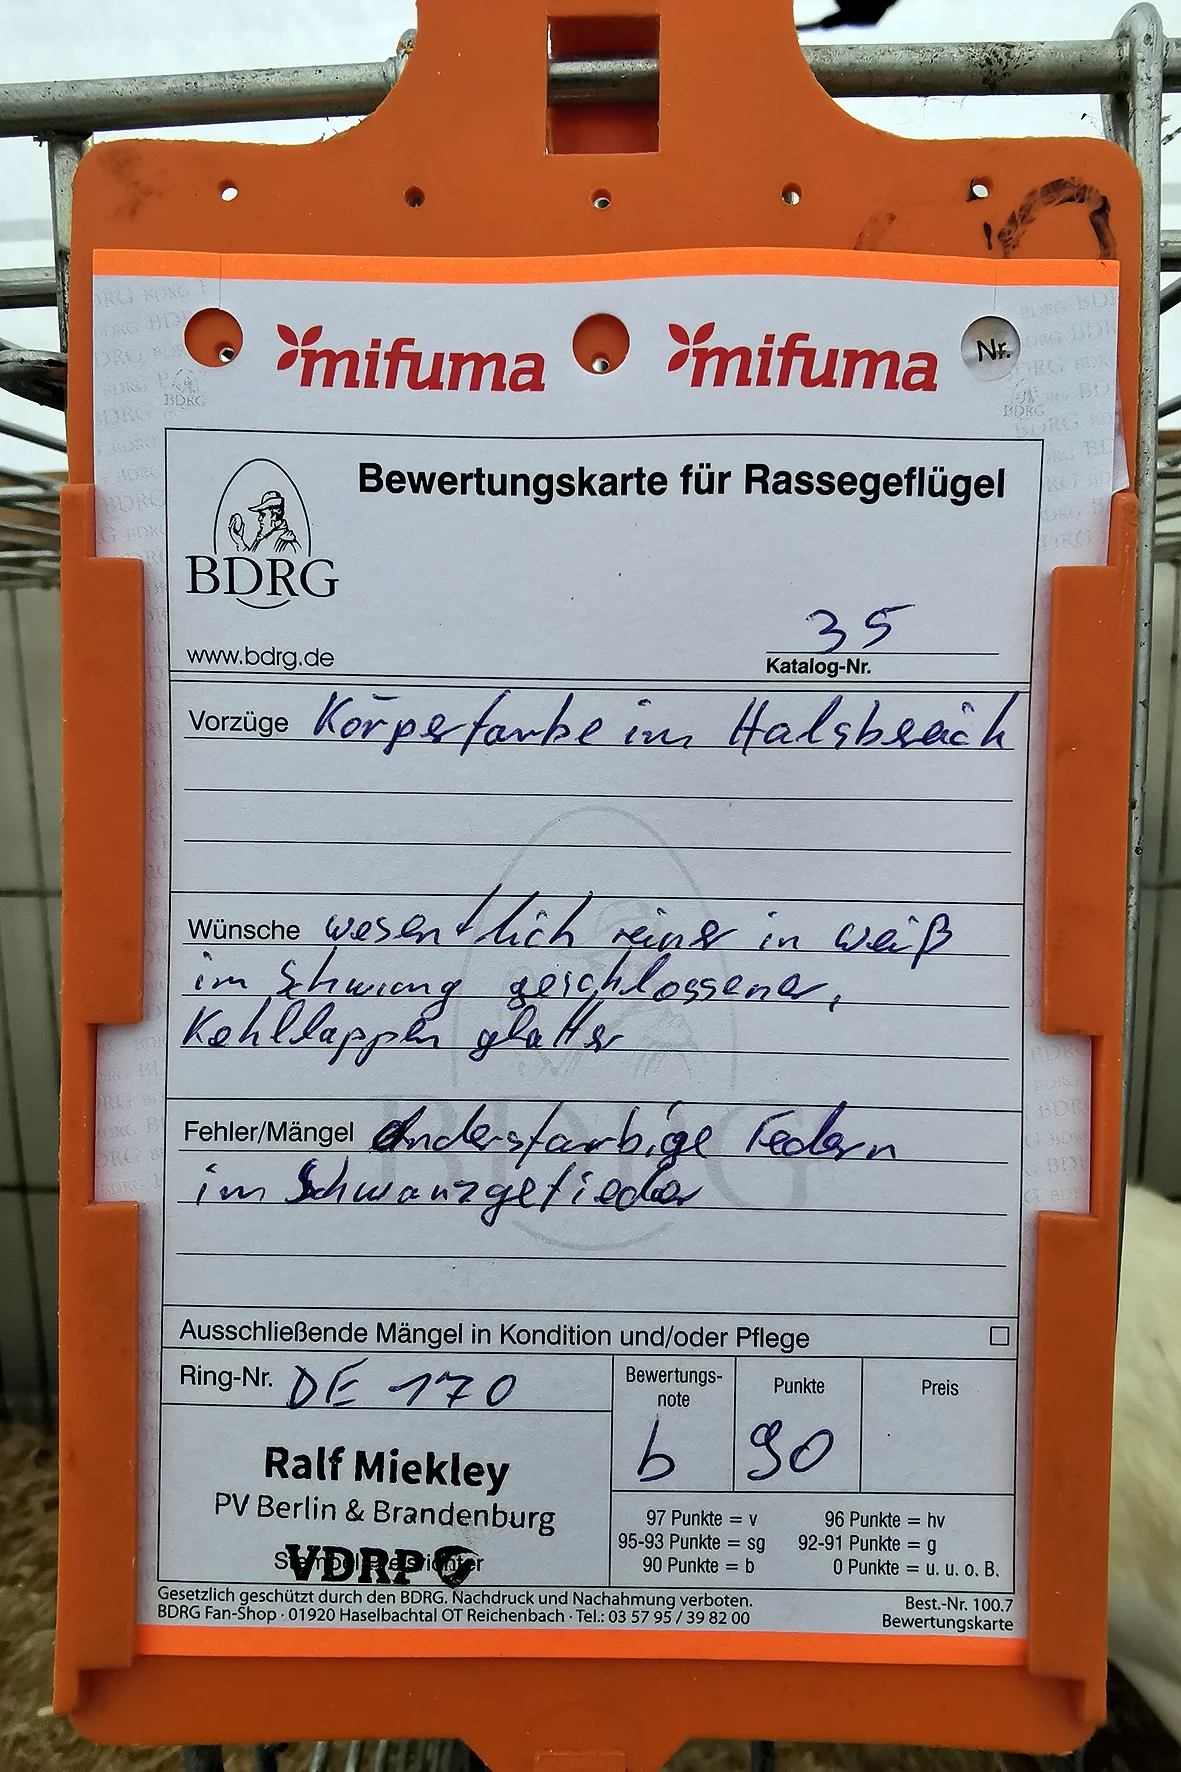 mifuma mifuma Nr.
BDRG BDRG
Bewertungskarte für Rassegeflügel
BDRG
35
www.bdrg.de
Katalog-Nr.
Vorzüge Körperfarbe im Halsbereich
Wünsche wesentlich reiner in weiß
im Schwung geschlossener,
Kehllappen glatter
Fehler/Mängel Andersfarbige Federn
im Schwanzgefieder
BDRG
Ausschließende Mängel in Kondition und/oder Pflege
Ring-Nr. DE 170
Bewertungs-
note
Punkte
Preis
b 90
Ralf Miekley
PV Berlin & Brandenburg
VDRP
97 Punkte = v 96 Punkte = hv
95-93 Punkte = sg 92-91 Punkte = g
90 Punkte = b 0 Punkte = u. u. o. B.
Gesetzlich geschützt durch den BDRG. Nachdruck und Nachahmung verboten.
BDRG Fan-Shop · 01920 Haselbachtal OT Reichenbach · Tel.: 03 57 95 / 39 82 00
Best.-Nr. 100.7
Bewertungskarte